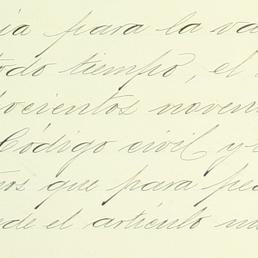 ia para la va
todo tiempo, el
ocientos noven
Código civil y
nos que para pe
de el artículo m